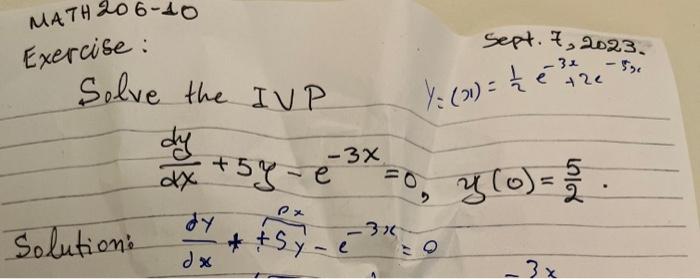 MATH 206-10
Sept. 7, 2023.
Exercise:
Solve the IVP
y=(x) = 1/2 e^-3x +2e^-5x
dy/dx + 5y - e^-3x = 0, y(0) = 5/2.
Solution: dy/dx + +5y - e^-3x = 0
-3x